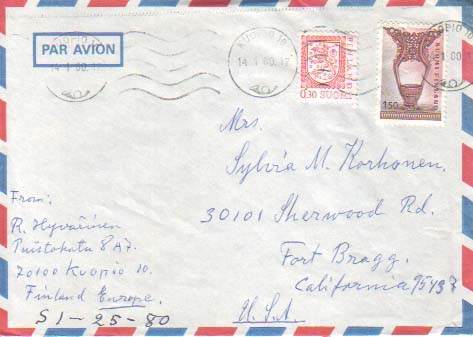 PAR AVION
KUOPIO 10
14.1.80.17
KUOPIO 10
14.1.80.17
0,30 SUOMI
FINLAND
1,50
SUOMI FINLAND
Mrs.
Sylvia M. Korhonen.
30101 Sherwood Rd.
Fort Bragg.
California 95437
U.S.A.
From:
R. Hyvärinen
Puistokatu 8 A7.
70100 Kuopio 10.
Finland Europe.
S 1-25-80